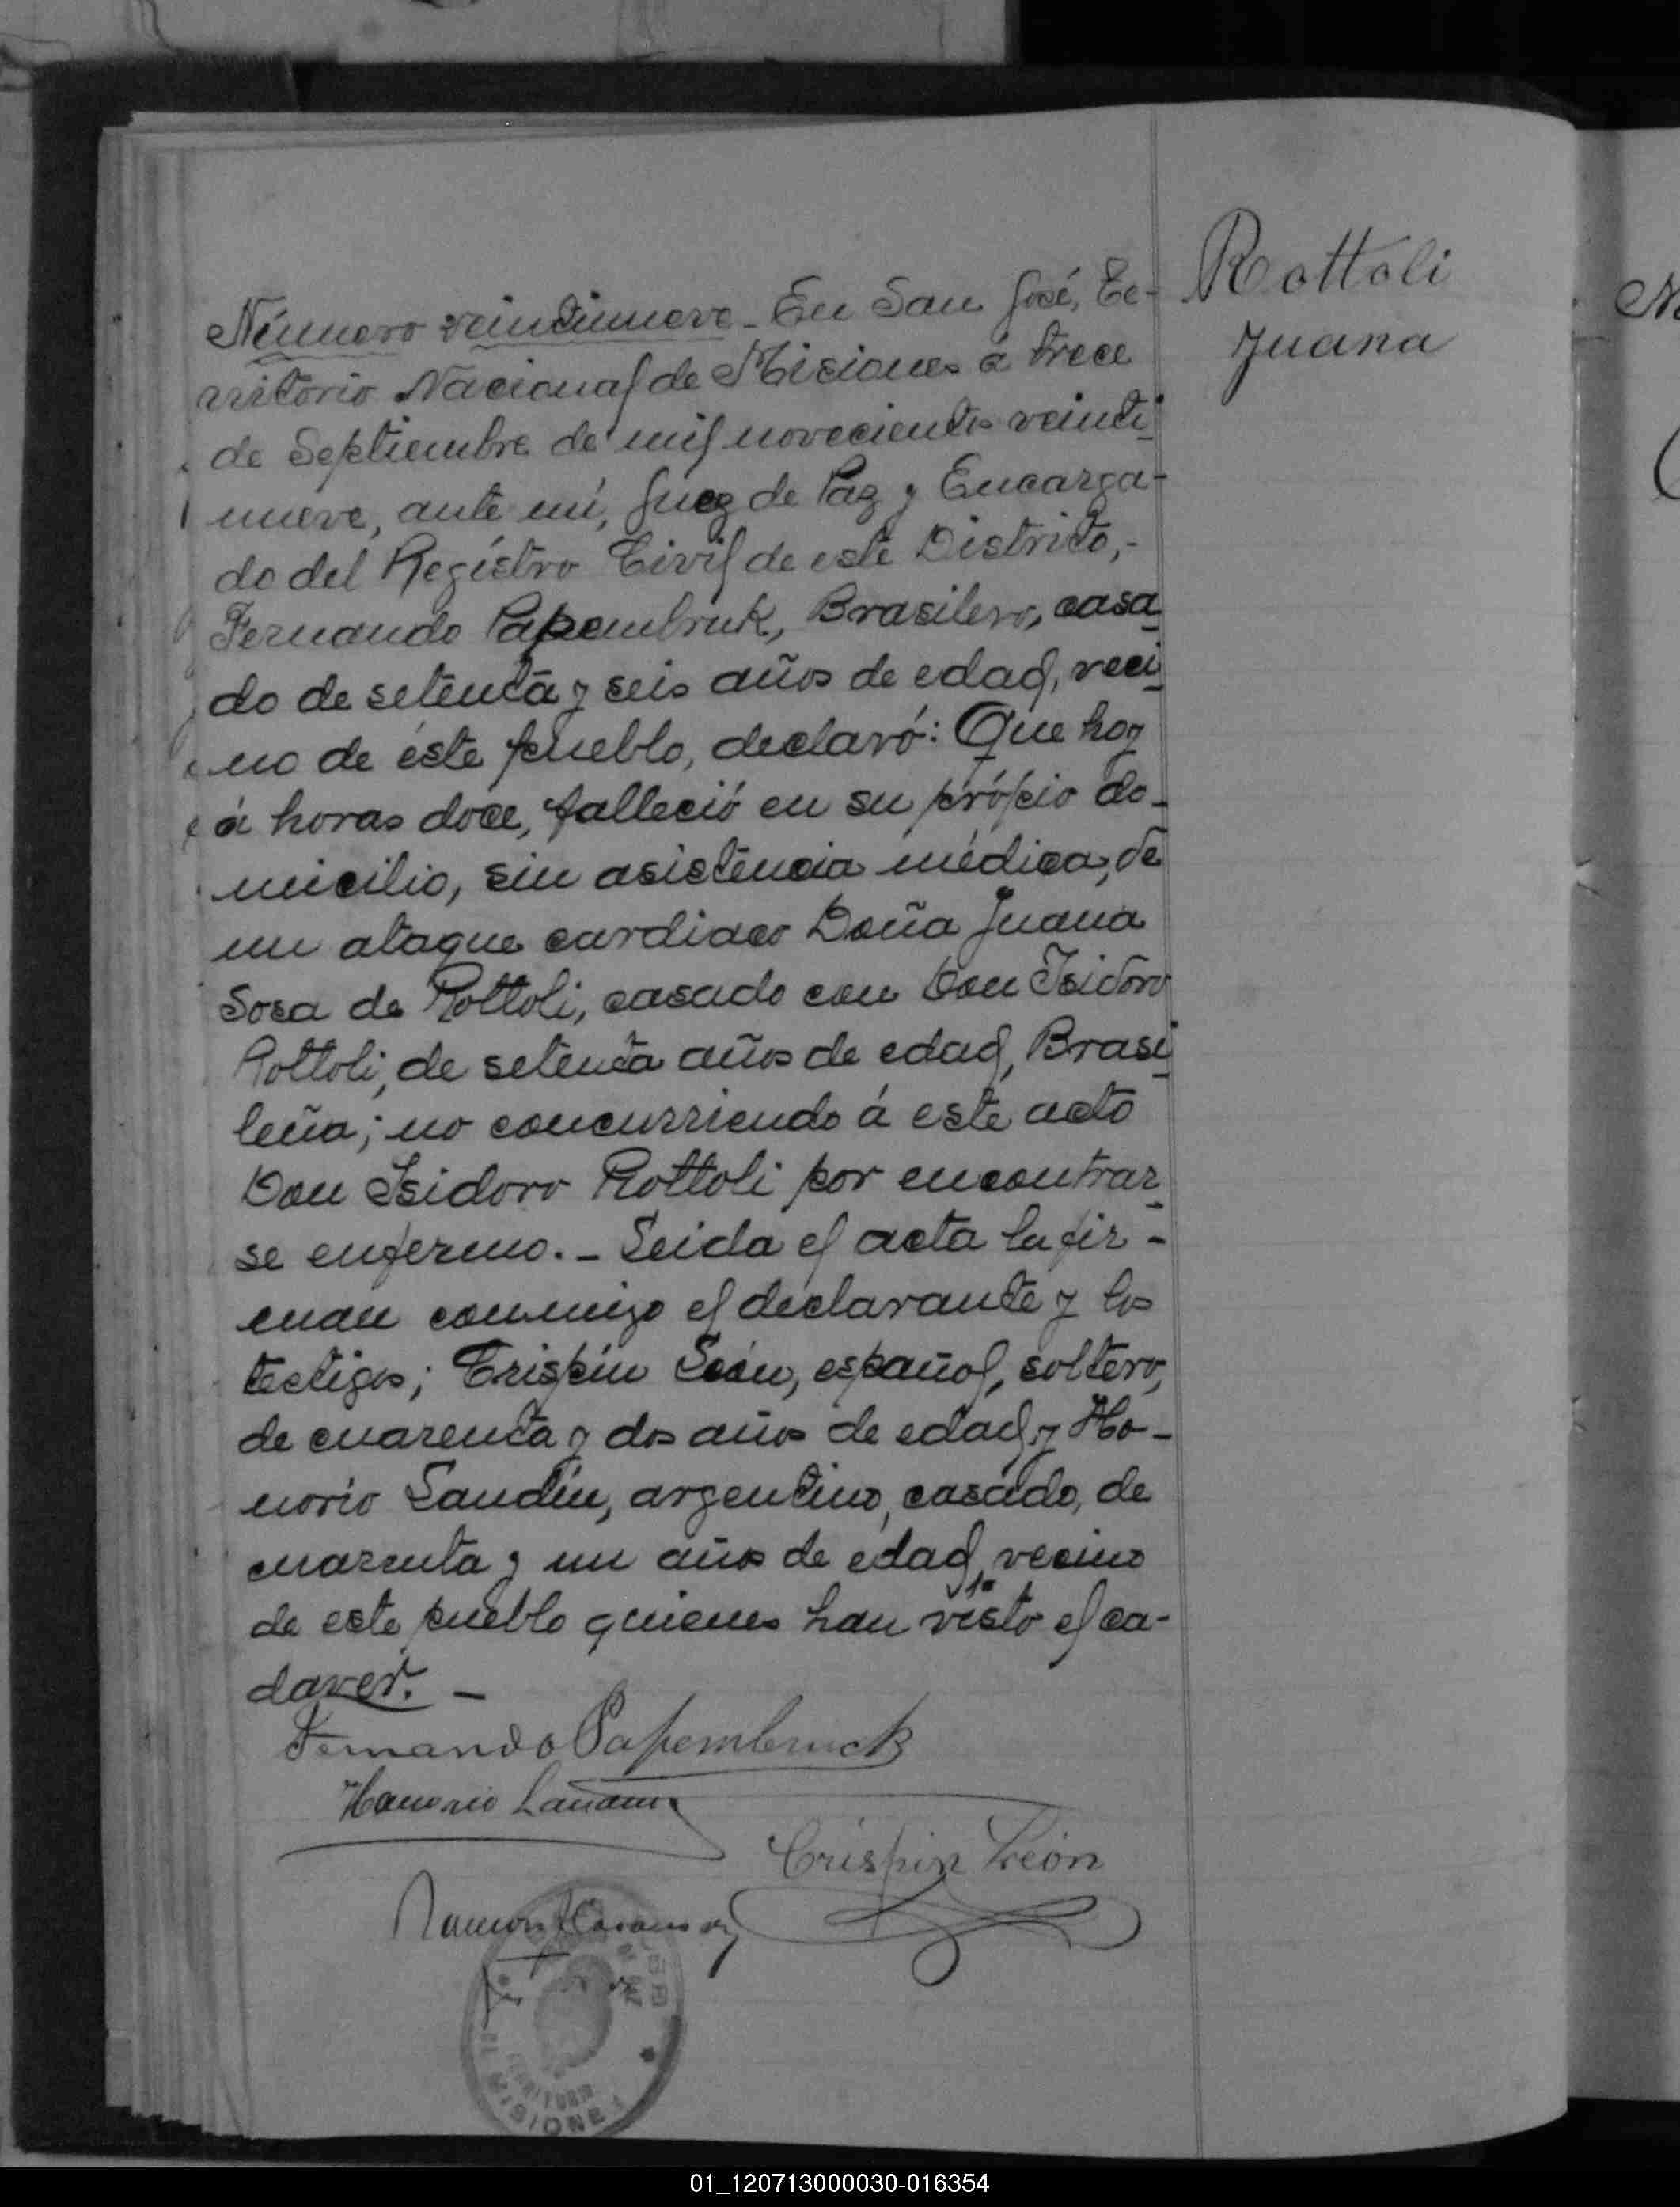 Rottoli
Juana
Número veintinueve - En San José, Te-
rritorio Nacional de Misiones á trece
de Septiembre de mil novecientos veinti
nueve, ante mí, Juez de Paz y Encarga-
do del Registro Civil de este Distrito,-
Fernando Papembruk, Brasilero, casa
do de setenta y seis años de edad, veci
no de éste pueblo, declaró: Que hoy
á horas doce, falleció en su própio do-
micilio, sin asistencia médica, de
un ataque cardiaco Doña Juana
Sosa de Rottoli, casado con Don Isidoro
Rottoli, de setenta años de edad, Brasi
leña; no concurriendo á este acto
Don Isidoro Rottoli por encontrar
se enfermo. - Leida el acta la fir-
man conmigo el declarante y los
testigos; Crispín León, español, soltero,
de cuarenta y dos años de edad, y Ho-
norio Landín, argentino, casado, de
cuarenta y un años de edad, vecino
de este pueblo quienes han visto el ca-
daver. -
Fernando Papembruck
Honorio
Crispin León
Ramon
MISIONES
01_120713000030-016354